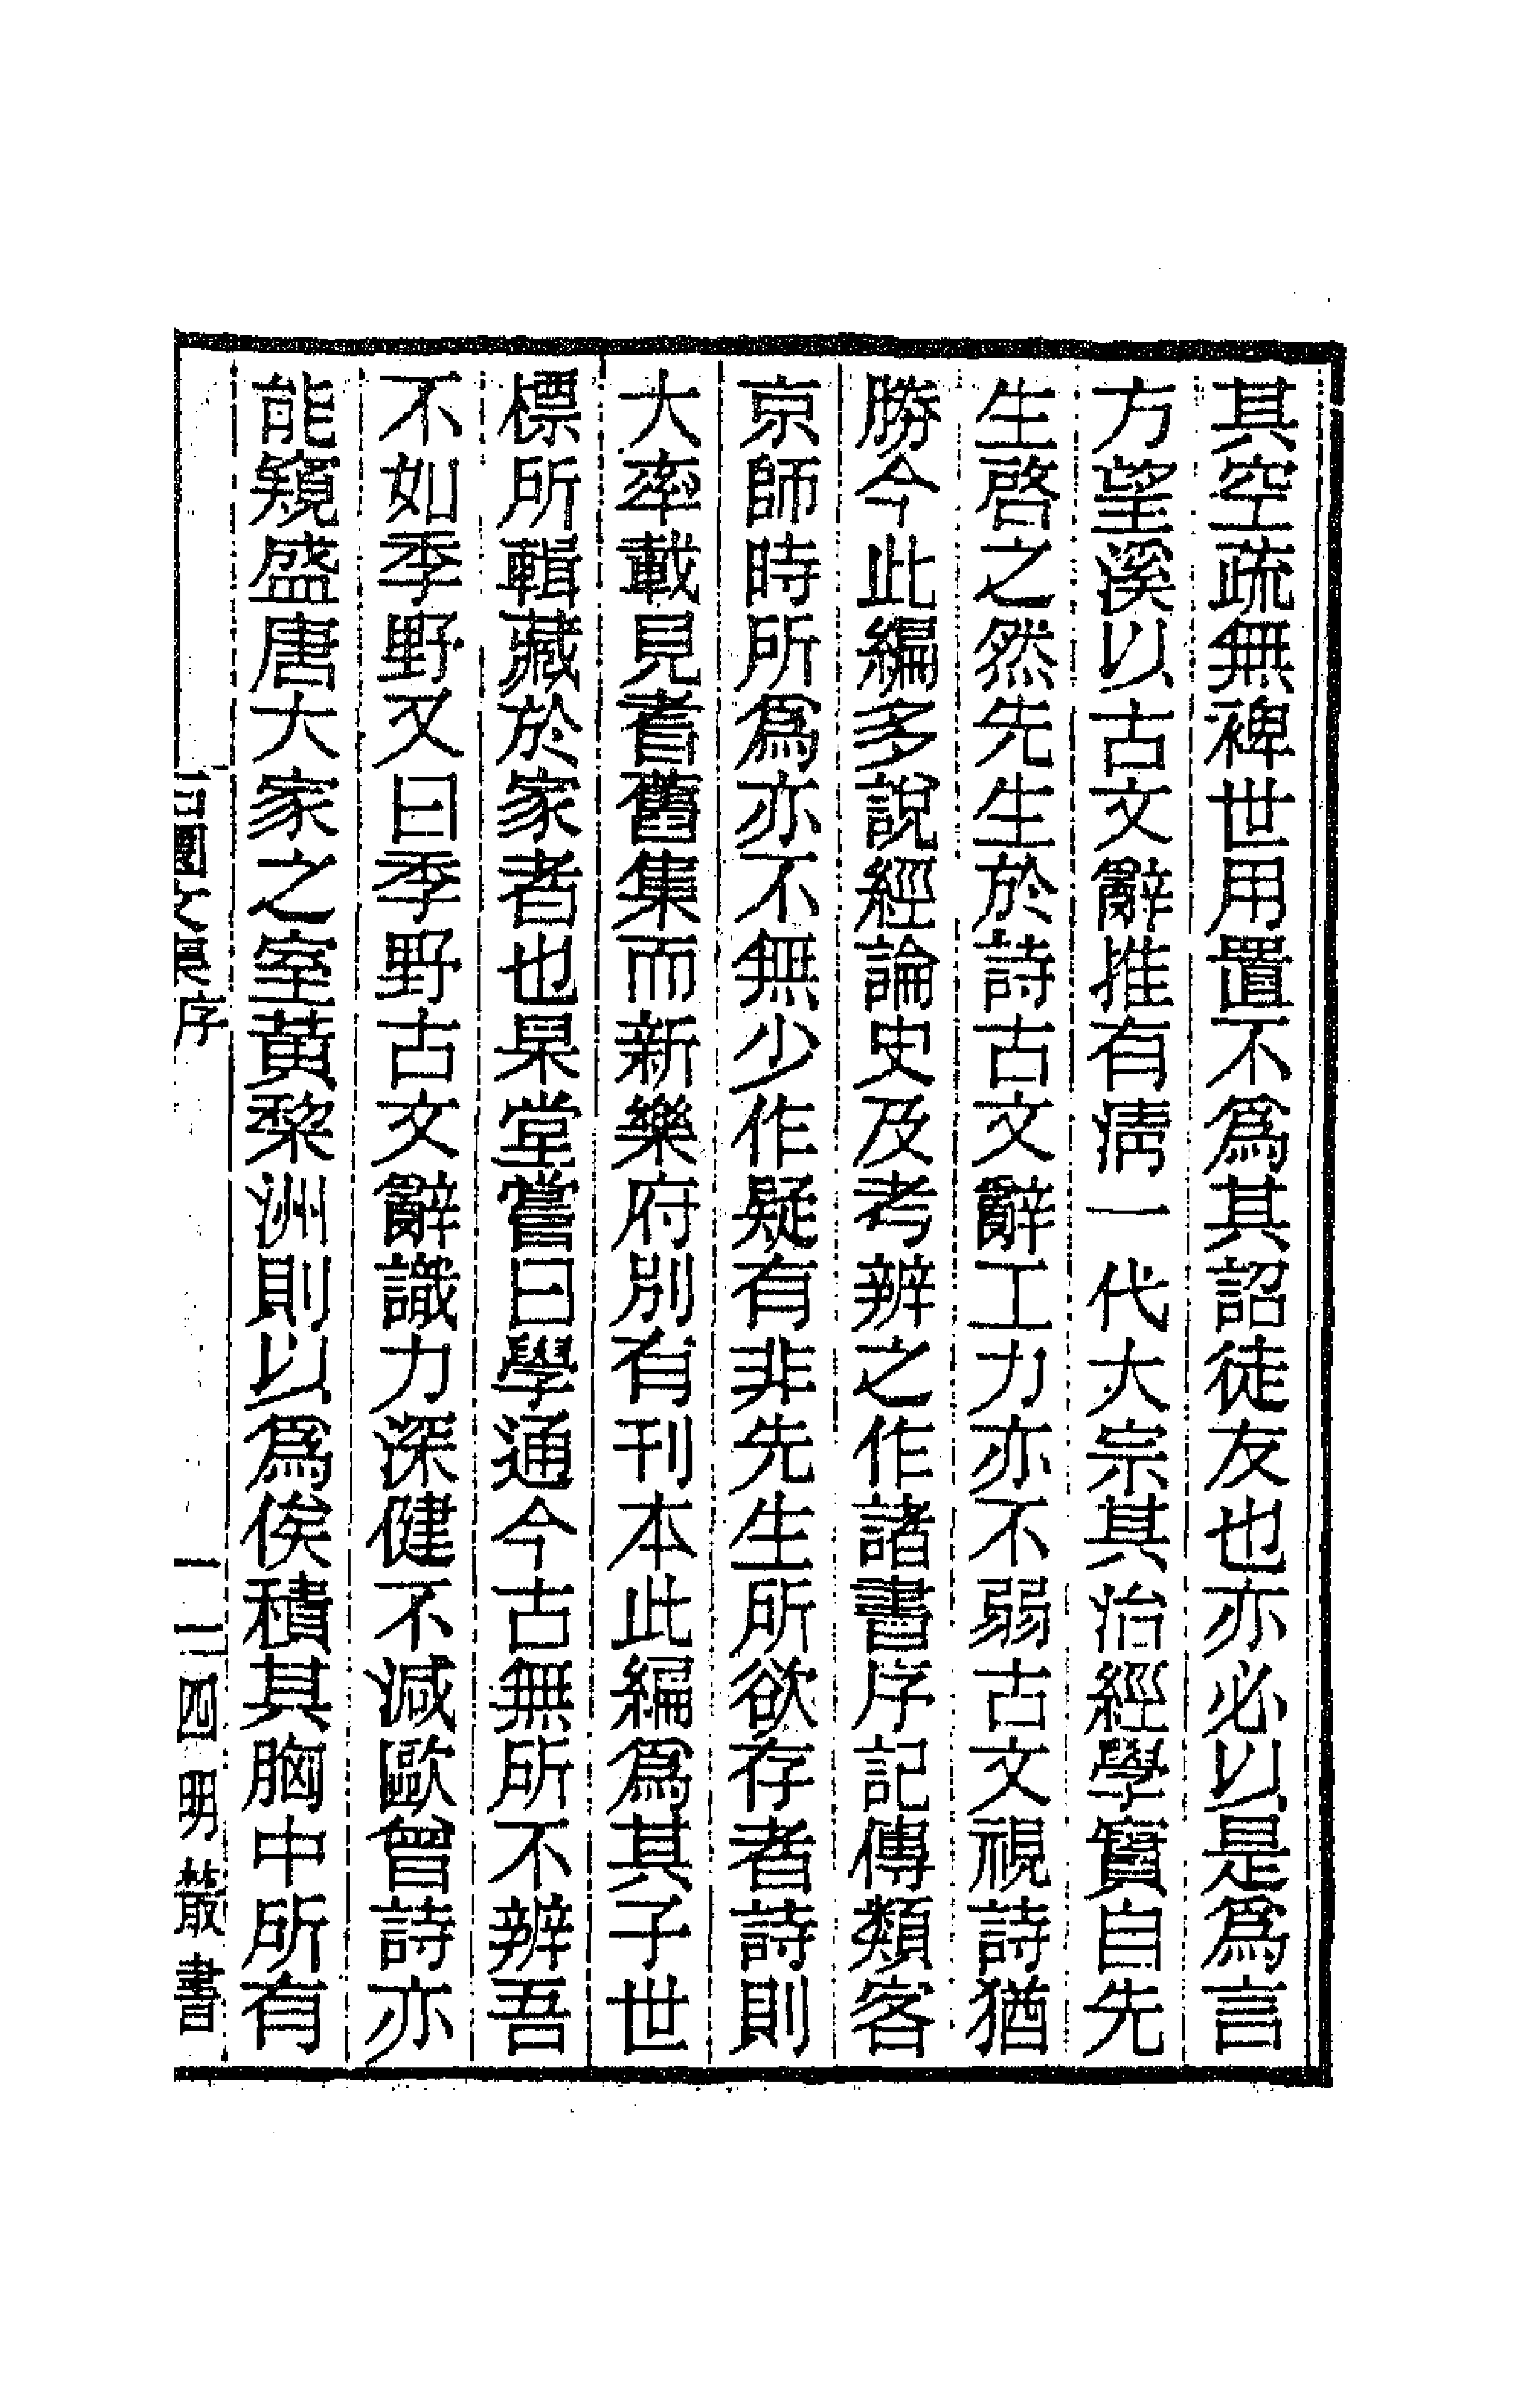 其空疏無裨世用置不爲其詔徒友也亦必以是爲言
方望溪以古文辭推有清一代大宗其治經學實自先
生啓之然先生於詩古文辭工力亦不弱古文視詩猶
勝今此編多說經論史及考辨之作諸書序記傳類客
京師時所爲亦不無少作疑有非先生所欲存者詩則
大率載見耆舊集而新樂府別有刊本此編爲其子世
標所輯藏於家者也杲堂嘗曰學通今古無所不辨吾
不如季野又曰季野古文辭識力深健不減歐曾詩亦
能窺盛唐大家之室黃棃洲則以爲俟積其胸中所有
石園文集序
四明叢書